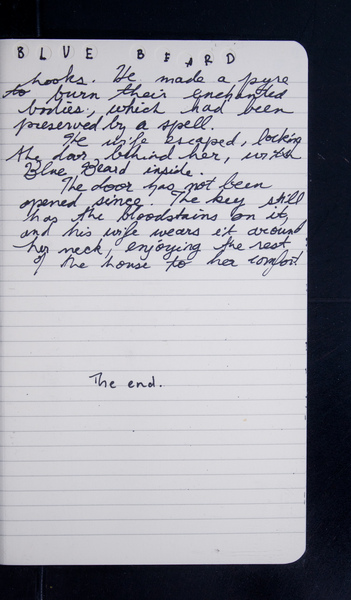 BLUE BEARD
hooks. He made a pyre
to burn their enchanted
bodies, which had been
preserved by a spell.
He wife escaped, locking
the door behind her, with
Blue Beard inside.
The door has not been
opened since. The key still
has the bloodstains on it,
and his wife wears it around
her neck, enjoying the rest
of the house to her comfort
The end.